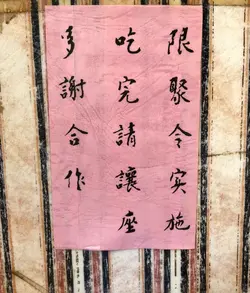 限聚令实施
吃完請讓座
多謝合作